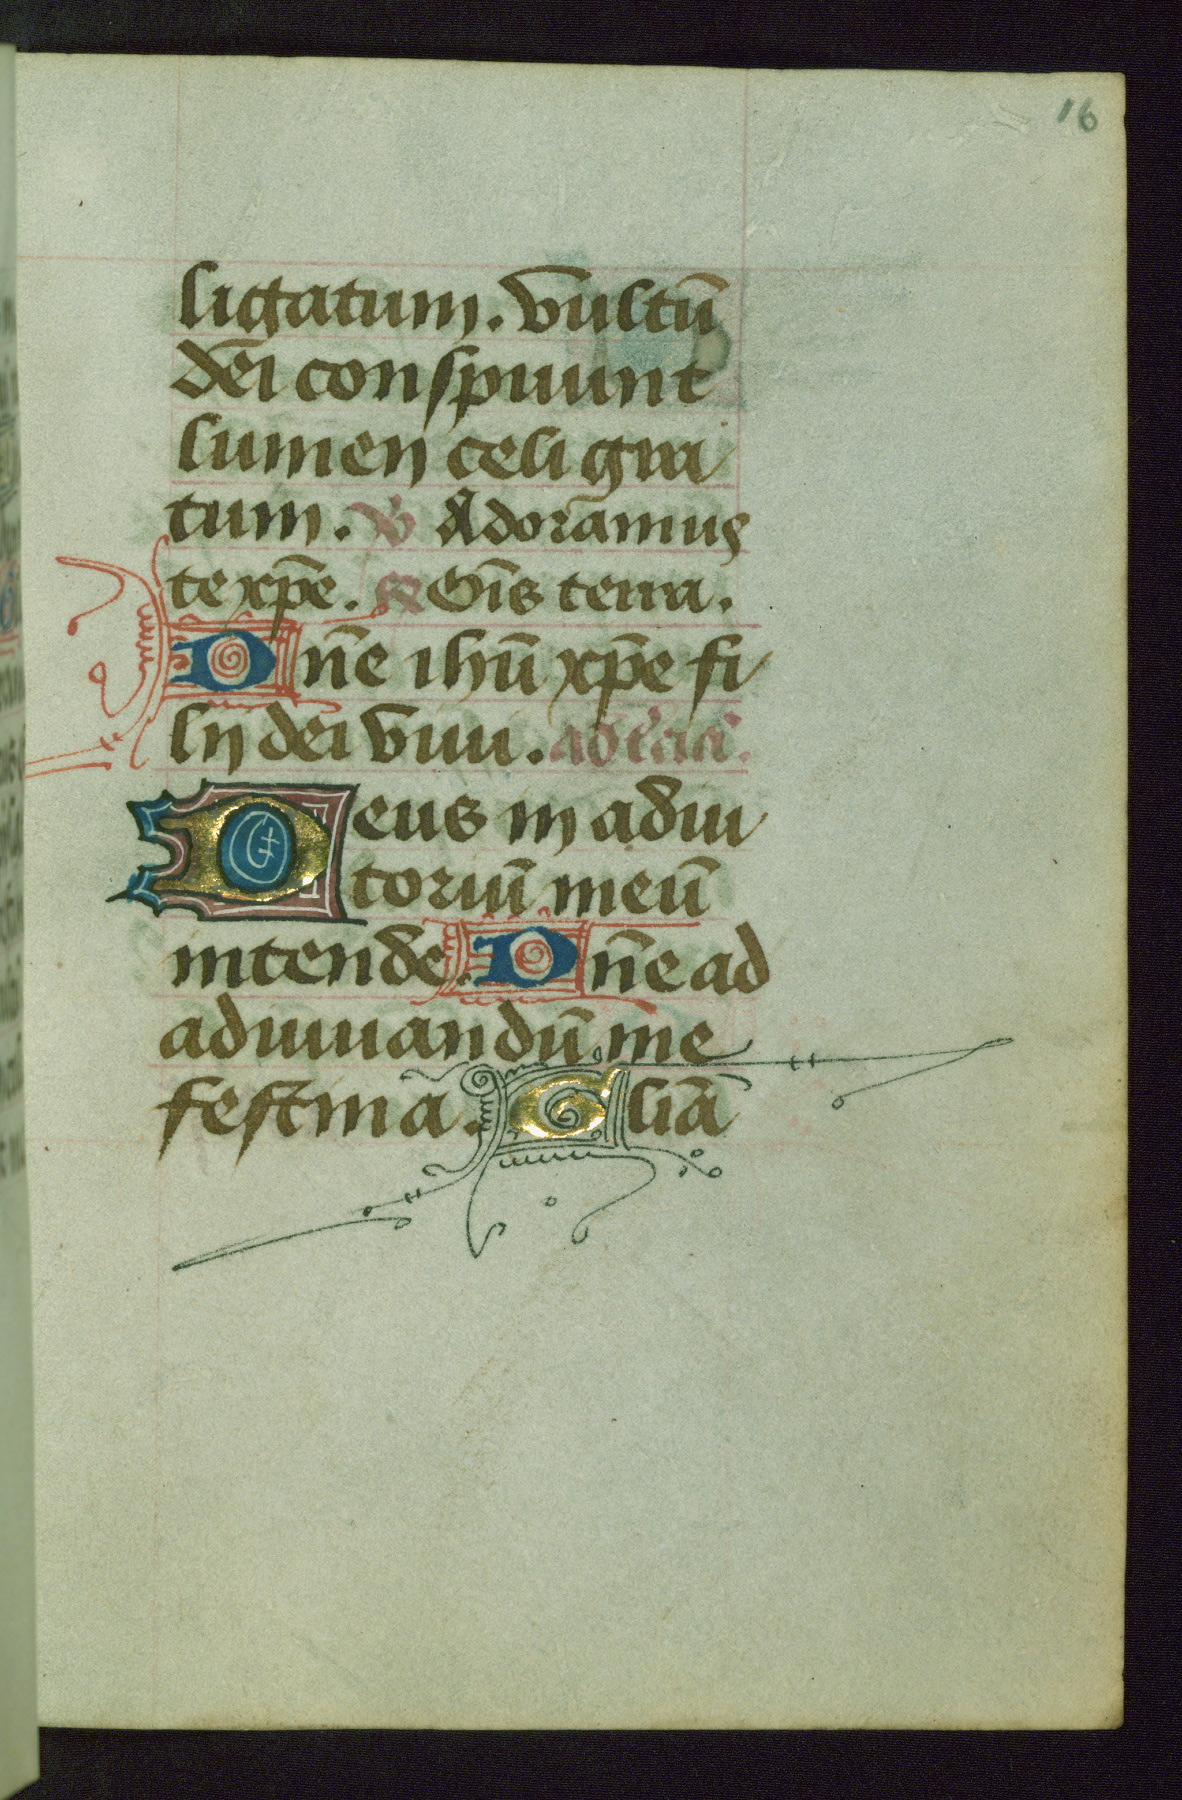 16
ligatum. vultū
dei conspuunt
lumen celi gra
tum. v̄ Adoramus
te xp̄e. Om̄s terra.
Dn̄e ihū xp̄e fi
lij dei vivi. ad t'ciā.
Deus in adiu
toriū meū
intende. Dn̄e ad
adiuuandū me
festina. Gliā